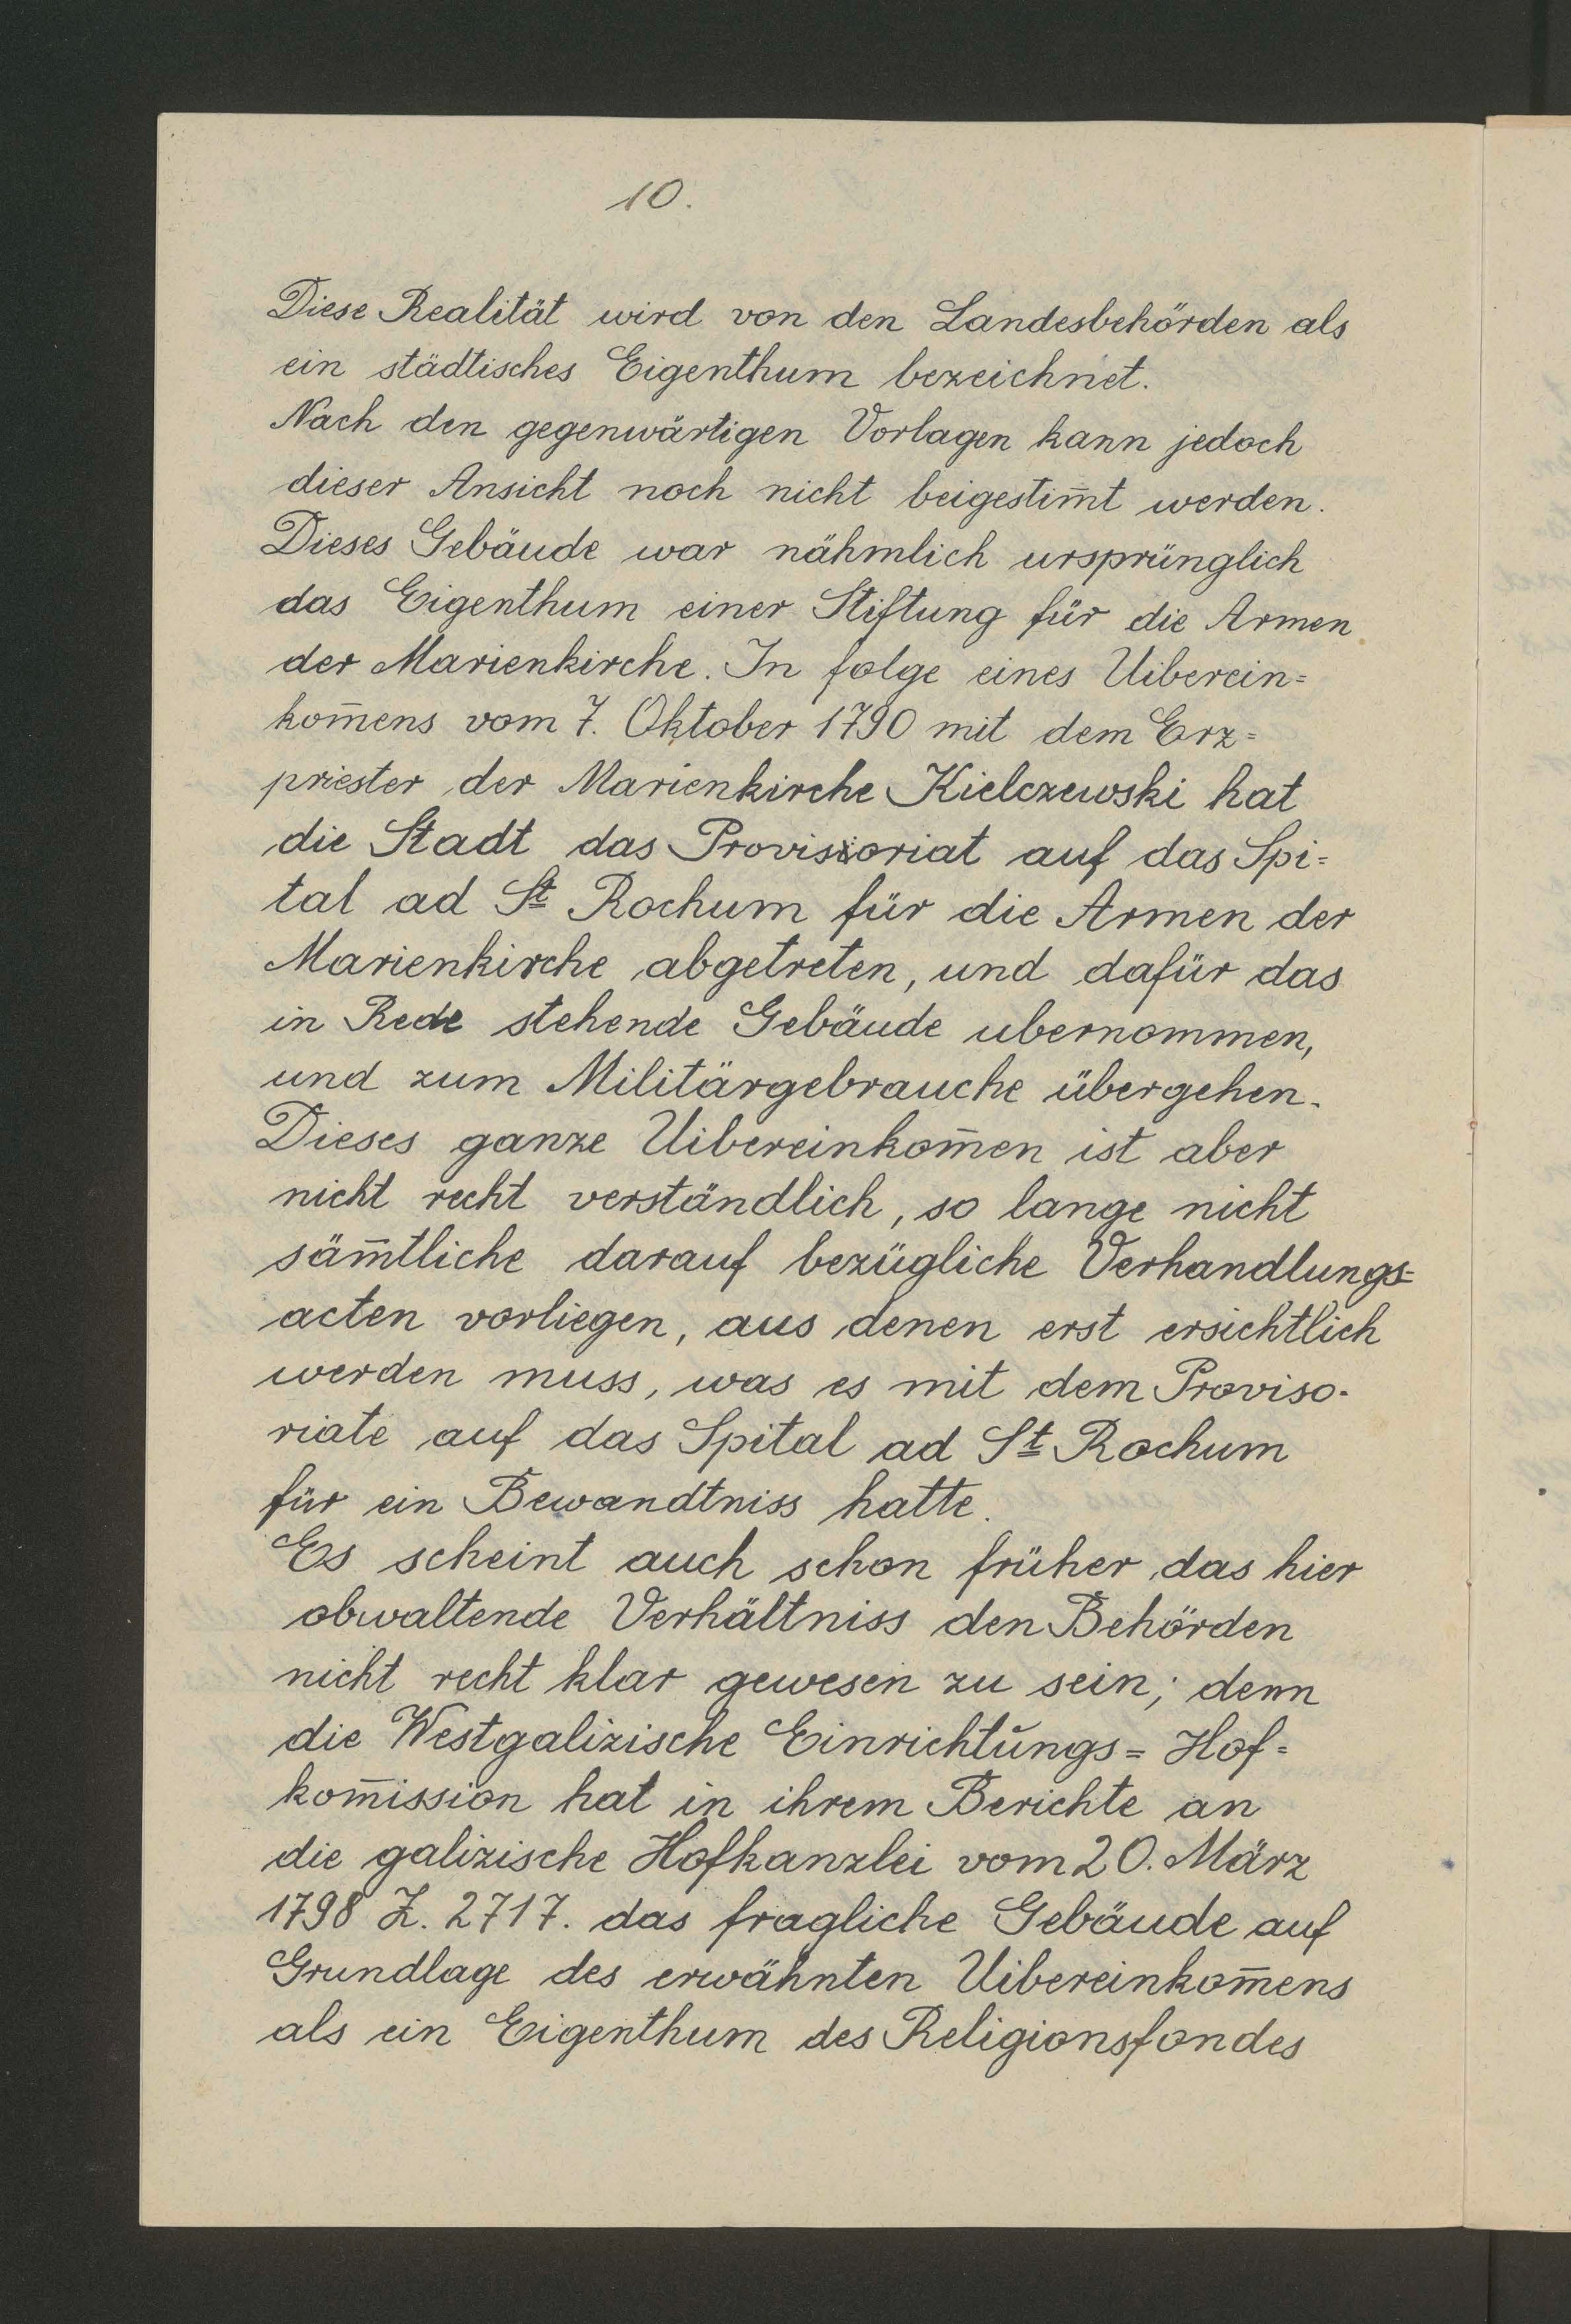 10.
Diese Realität wird von den Landesbehörden als
ein städtisches Eigenthum bezeichnet.
Nach den gegenwärtigen Vorlagen kann jedoch
dieser Ansicht noch nicht beigestim̅t werden.
Dieses Gebäude war nähmlich ursprünglich
das Eigenthum einer Stiftung für die Armen
der Marienkirche. In folge eines Uiberein=
kom̅ens vom 7. Oktober 1790 mit dem Erz=
priester der Marienkirche Kielczewski hat
die Stadt das Provisioriat auf das Spi=
tal ad St Rochum für die Armen der
Marienkirche abgetreten, und dafür das
in Rede stehende Gebäude ubernommen,
und zum Militärgebrauche übergehen.
Dieses ganze Uibereinkom̅en ist aber
nicht recht verständlich, so lange nicht
säm̅tliche darauf bezügliche Verhandlungs=
acten vorliegen, aus denen erst ersichtlich
werden muss, was es mit dem Proviso-
riate auf das Spital ad St Rochum
für ein Bewandtniss hatte.
Es scheint auch schon früher das hier
obwaltende Verhältniss den Behörden
nicht recht klar gewesen zu sein; denn
die Westgalizische Einrichtŭngs=Hof=
kom̅ission hat in ihrem Berichte an
die galizische Hofkanzlei vom 20. März
1798 Z. 2717. das fragliche Gebäude auf
Grundlage des erwähnten Uibereinkom̅ens
als ein Eigenthum des Religionsfondes